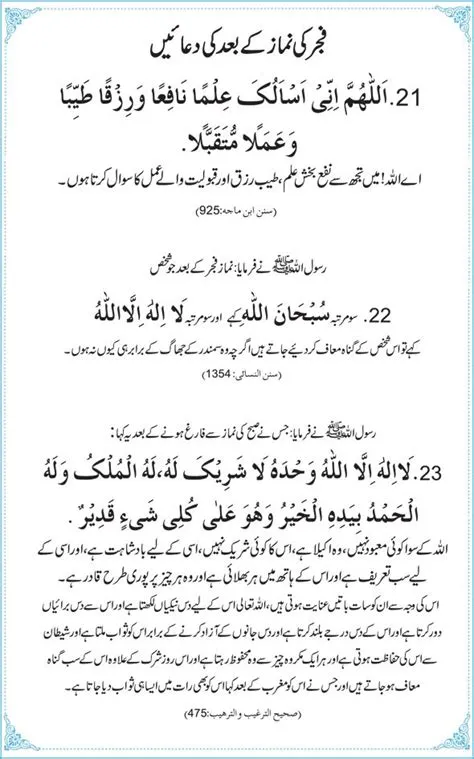 فجر کی نماز کے بعد کی دعائیں
21. اَللّٰهُمَّ اِنِّیْ اَسْاَلُکَ عِلْمًا نَافِعًا وَرِزْقًا طَیِّبًا
وَعَمَلًا مُّتَقَبَّلًا.
اے اللہ! میں تجھ سے نفع بخش علم، طیب رزق اور قبولیت والے عمل کا سوال کرتا ہوں۔
(سنن ابن ماجه:925)
رسول اللہ ﷺ نے فرمایا: نماز فجر کے بعد جو شخص
22. سو مرتبہ سُبْحَانَ اللّٰهِ کہے اور سو مرتبہ لَا اِلٰهَ اِلَّا اللّٰهُ
کہے تو اس شخص کے گناہ معاف کر دیئے جاتے ہیں اگرچہ وہ سمندر کے جھاگ کے برابر ہی کیوں نہ ہوں۔
(سنن النسائی: 1354)
رسول اللہ ﷺ نے فرمایا: جس نے صبح کی نماز سے فارغ ہونے کے بعد یہ کہا:
23. لَا اِلٰهَ اِلَّا اللّٰهُ وَحْدَهُ لَا شَرِیْکَ لَهُ، لَهُ الْمُلْکُ وَلَهُ
الْحَمْدُ بِیَدِهِ الْخَیْرُ وَهُوَ عَلٰی کُلِّ شَیْءٍ قَدِیْرٌ.
اللہ کے سوا کوئی معبود نہیں، وہ اکیلا ہے، اس کا کوئی شریک نہیں، اسی کے لیے بادشاہت ہے، اور اسی کے
لیے سب تعریف ہے اور اس کے ہاتھ میں ہر بھلائی ہے اور وہ ہر چیز پر پوری طرح قادر ہے۔
اس کی وجہ سے ان کو سات باتیں عنایت ہوتی ہیں، اللہ تعالی اس کے لیے دس نیکیاں لکھتا ہے اور اس سے دس برائیاں
دور کرتا ہے اور اس کے دس درجے بلند کرتا ہے اور دس جانوں کے آزاد کرنے کے برابر اس کو ثواب ملتا ہے اور شیطان
سے اس کی حفاظت ہوتی ہے اور ہر ایک مکروہ چیز سے وہ محفوظ رہتا ہے اور اس روز شرک کے علاوہ اس کے سب گناہ
معاف ہو جاتے ہیں اور جس نے اس کو مغرب کے بعد کہا اس کو بھی رات میں ایسا ہی ثواب دیا جاتا ہے۔
(صحیح الترغیب والترهیب:475)